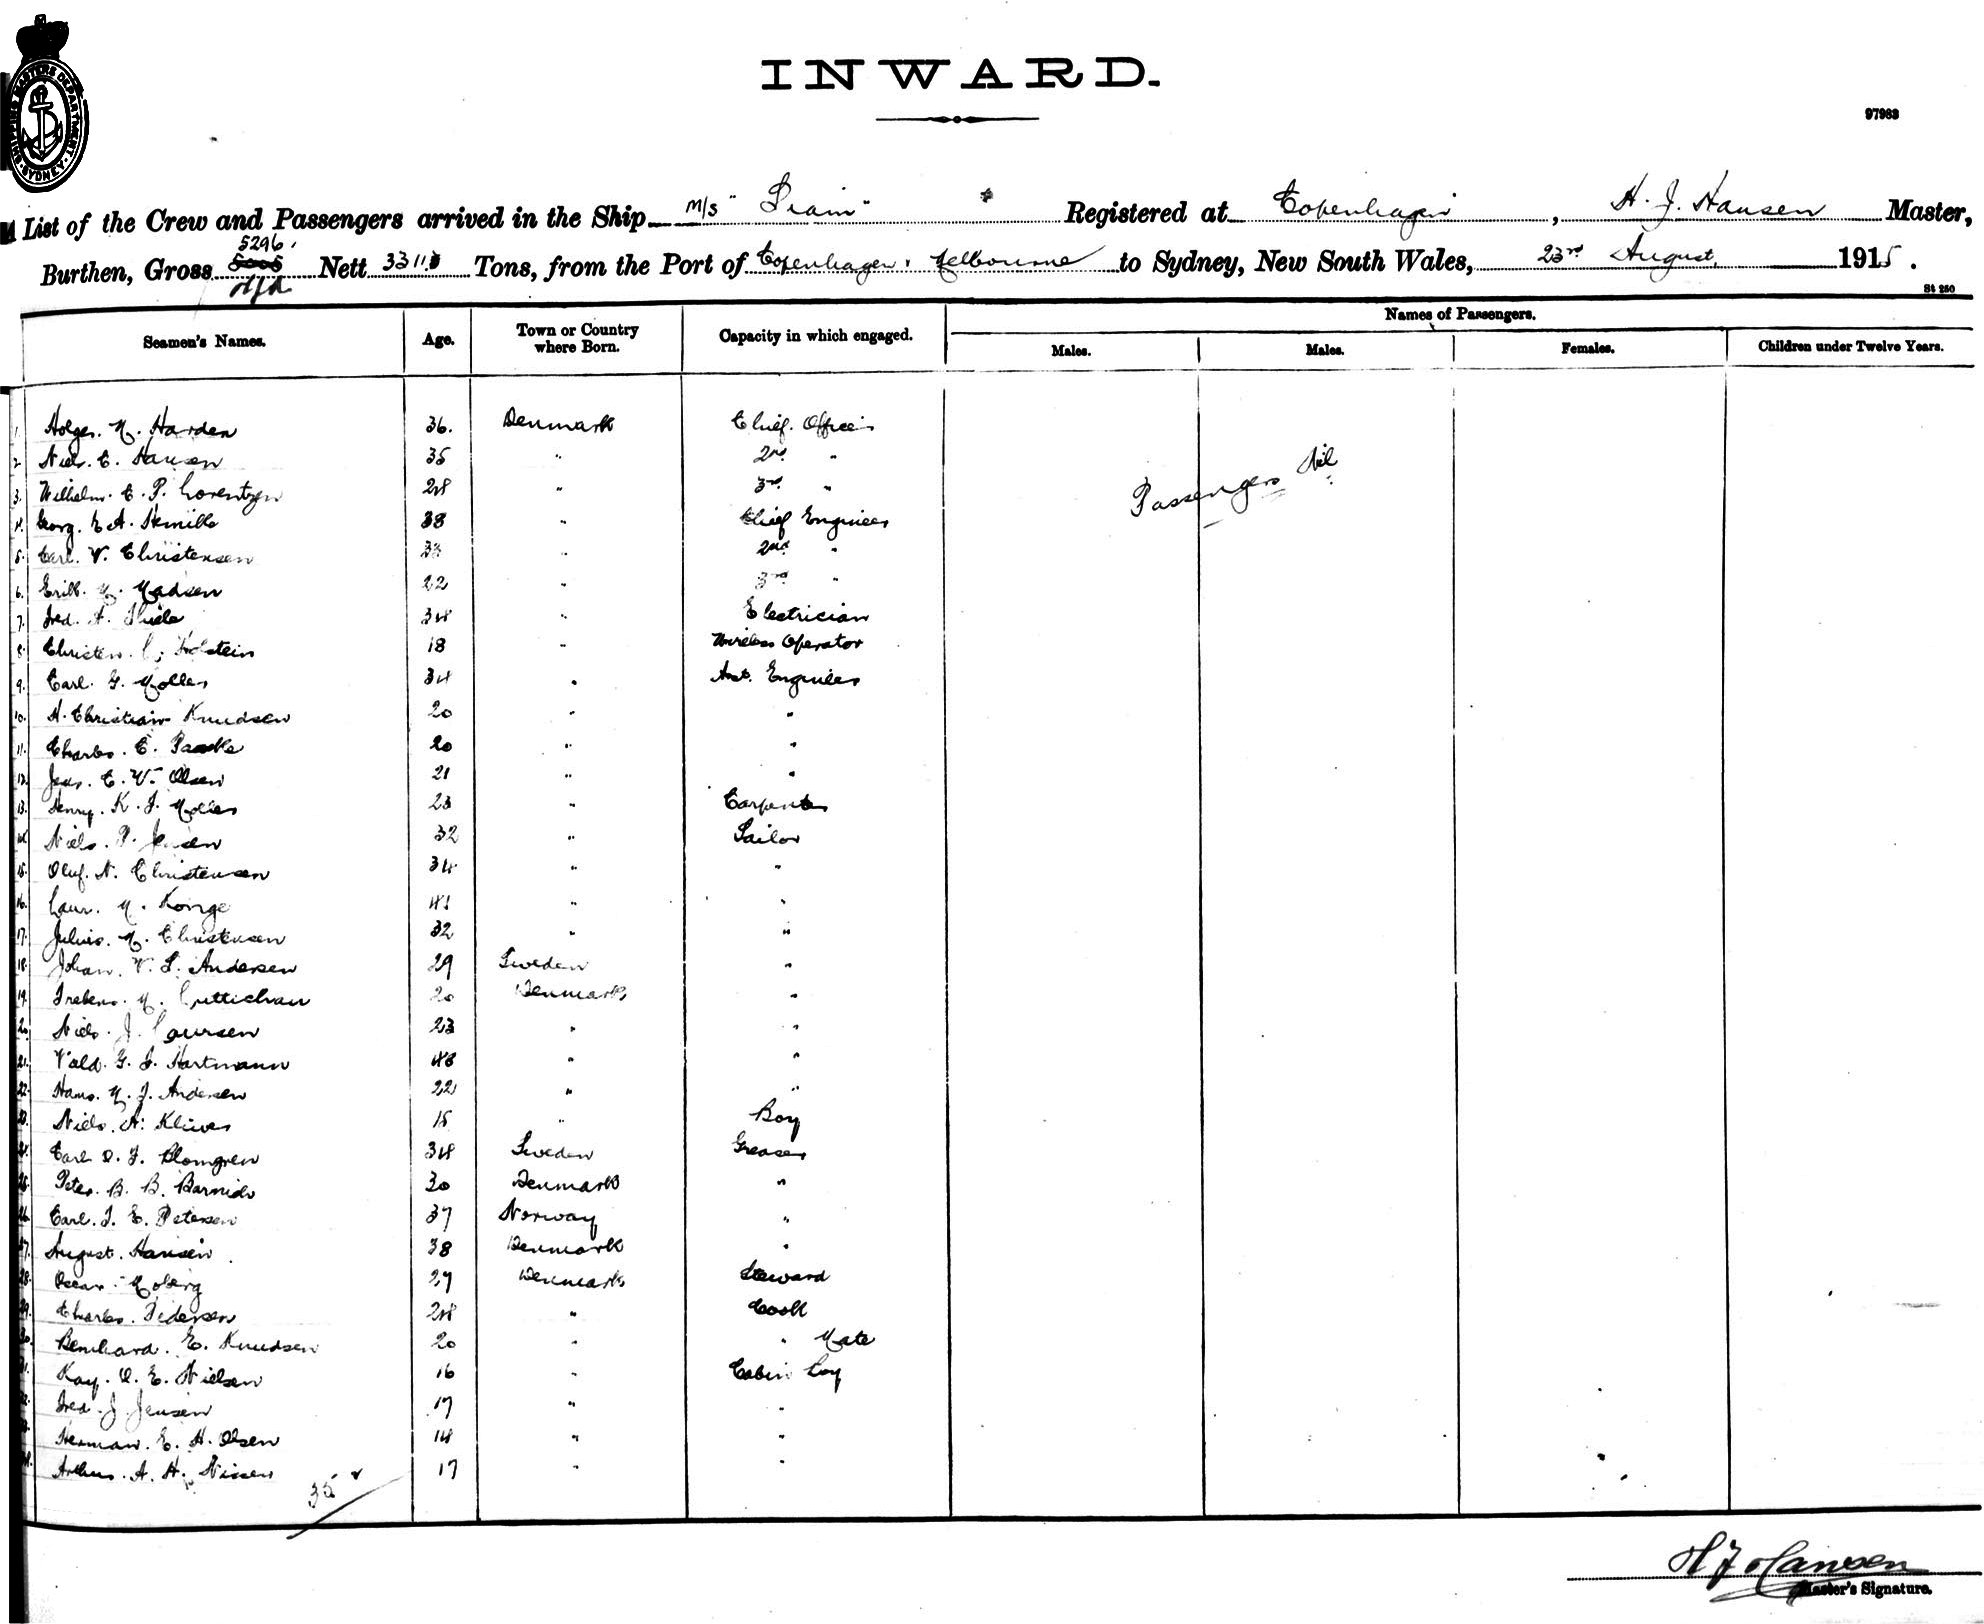 SHIPPING MASTERS DEPARTMENT SYDNEY
INWARD.
97983
List of the Crew and Passengers arrived in the Ship M/S "Siam" Registered at Copenhagen, H. J. Hansen Master,
5296
Burthen, Gross 5005 Nett 3311 Tons, from the Port of Copenhagen, Melbourne to Sydney, New South Wales, 23rd August, 1915.
St 250
Seamen's Names. Age. Town or Country where Born. Capacity in which engaged. Names of Passengers.
Males. Males. Females. Children under Twelve Years.
1. Holger. M. Harden 36. Denmark Chief. Officer
2. Niels. C. Hansen 35 " 2nd "
Passengers Nil
3. Wilhelm. C. P. Lorentzen 28 " 3rd "
4. Georg. E. A. 38 " Chief Engineer
5. Carl. V. Christensen 33 " 2nd "
6. Erik. M. Madsen 22 " 3rd "
7. Fred. A. Thiele 34 " Electrician
8. Christen. C. Holstein 18 " Wireless Operator
9. Carl. G. Moller 34 " Asst. Engineer
10. H. Christian Knudsen 20 " "
11. Charles. C. 20 " "
12. Jens. C. V. Olsen 21 " "
13. Henry. K. J. Moller 23 " Carpenter
14. Niels. P. Jensen 32 " Sailor
15. Oluf. N. Christensen 34 " "
16. Laur. M. Konge 41 " "
17. Julius. M. Christensen 32 " "
18. Johan. V. S. Andersen 29 Sweden "
19. M. Luttichau 20 Denmark "
20. Niels. J. Laursen 23 " "
21. Vald. G. J. Hartmann 48 " "
22. Hans. M. J. Andersen 22 " "
23. Niels. A. 15 " Boy
24. Carl O. F. Blomgren 34 Sweden Greaser
25. Peter. B. B. 30 Denmark "
26. Carl. J. E. Petersen 37 Norway "
27. August. Hansen 38 Denmark "
28. Oscar. Moberg 27 Denmark Steward
29. Charles. Pedersen 28 " Cook
30. Bernhard. E. Knudsen 20 " " Mate
31. Kay. O. E. Nielsen 16 " Cabin boy
32. Fred. J. Jensen 17 " "
33. Herman. E. H. Olsen 14 " "
34. Arthur. A. H. Nissen 17 " "
35
H J Hansen
Master's Signature.